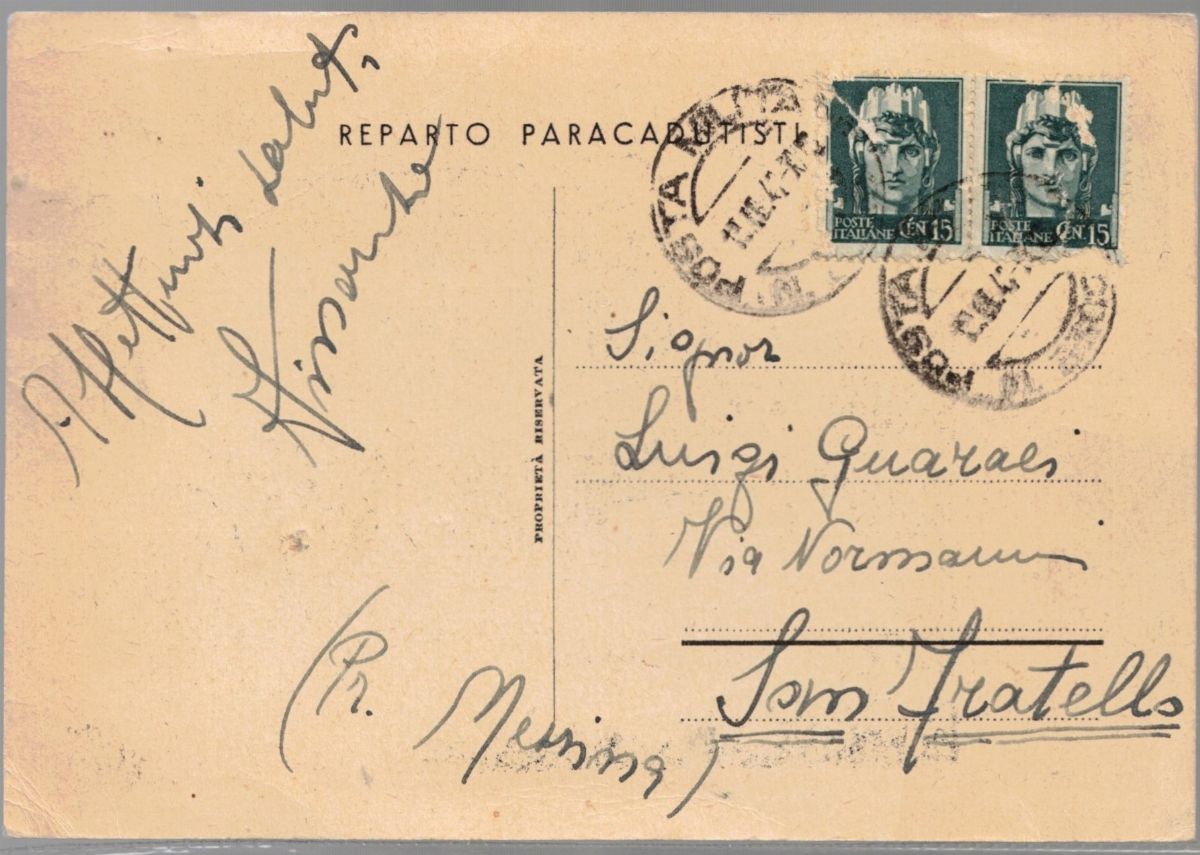 REPARTO PARACADUTISTI
Affettuosi saluti,
POSTE
ITALIANE CEN 15
POSTE
ITALIANE CEN 15
POSTA MILITA
POSTA
PROPRIETÀ RISERVATA
Signor
Luigi
Via Normanni
San Fratello
(Pr. Messina)